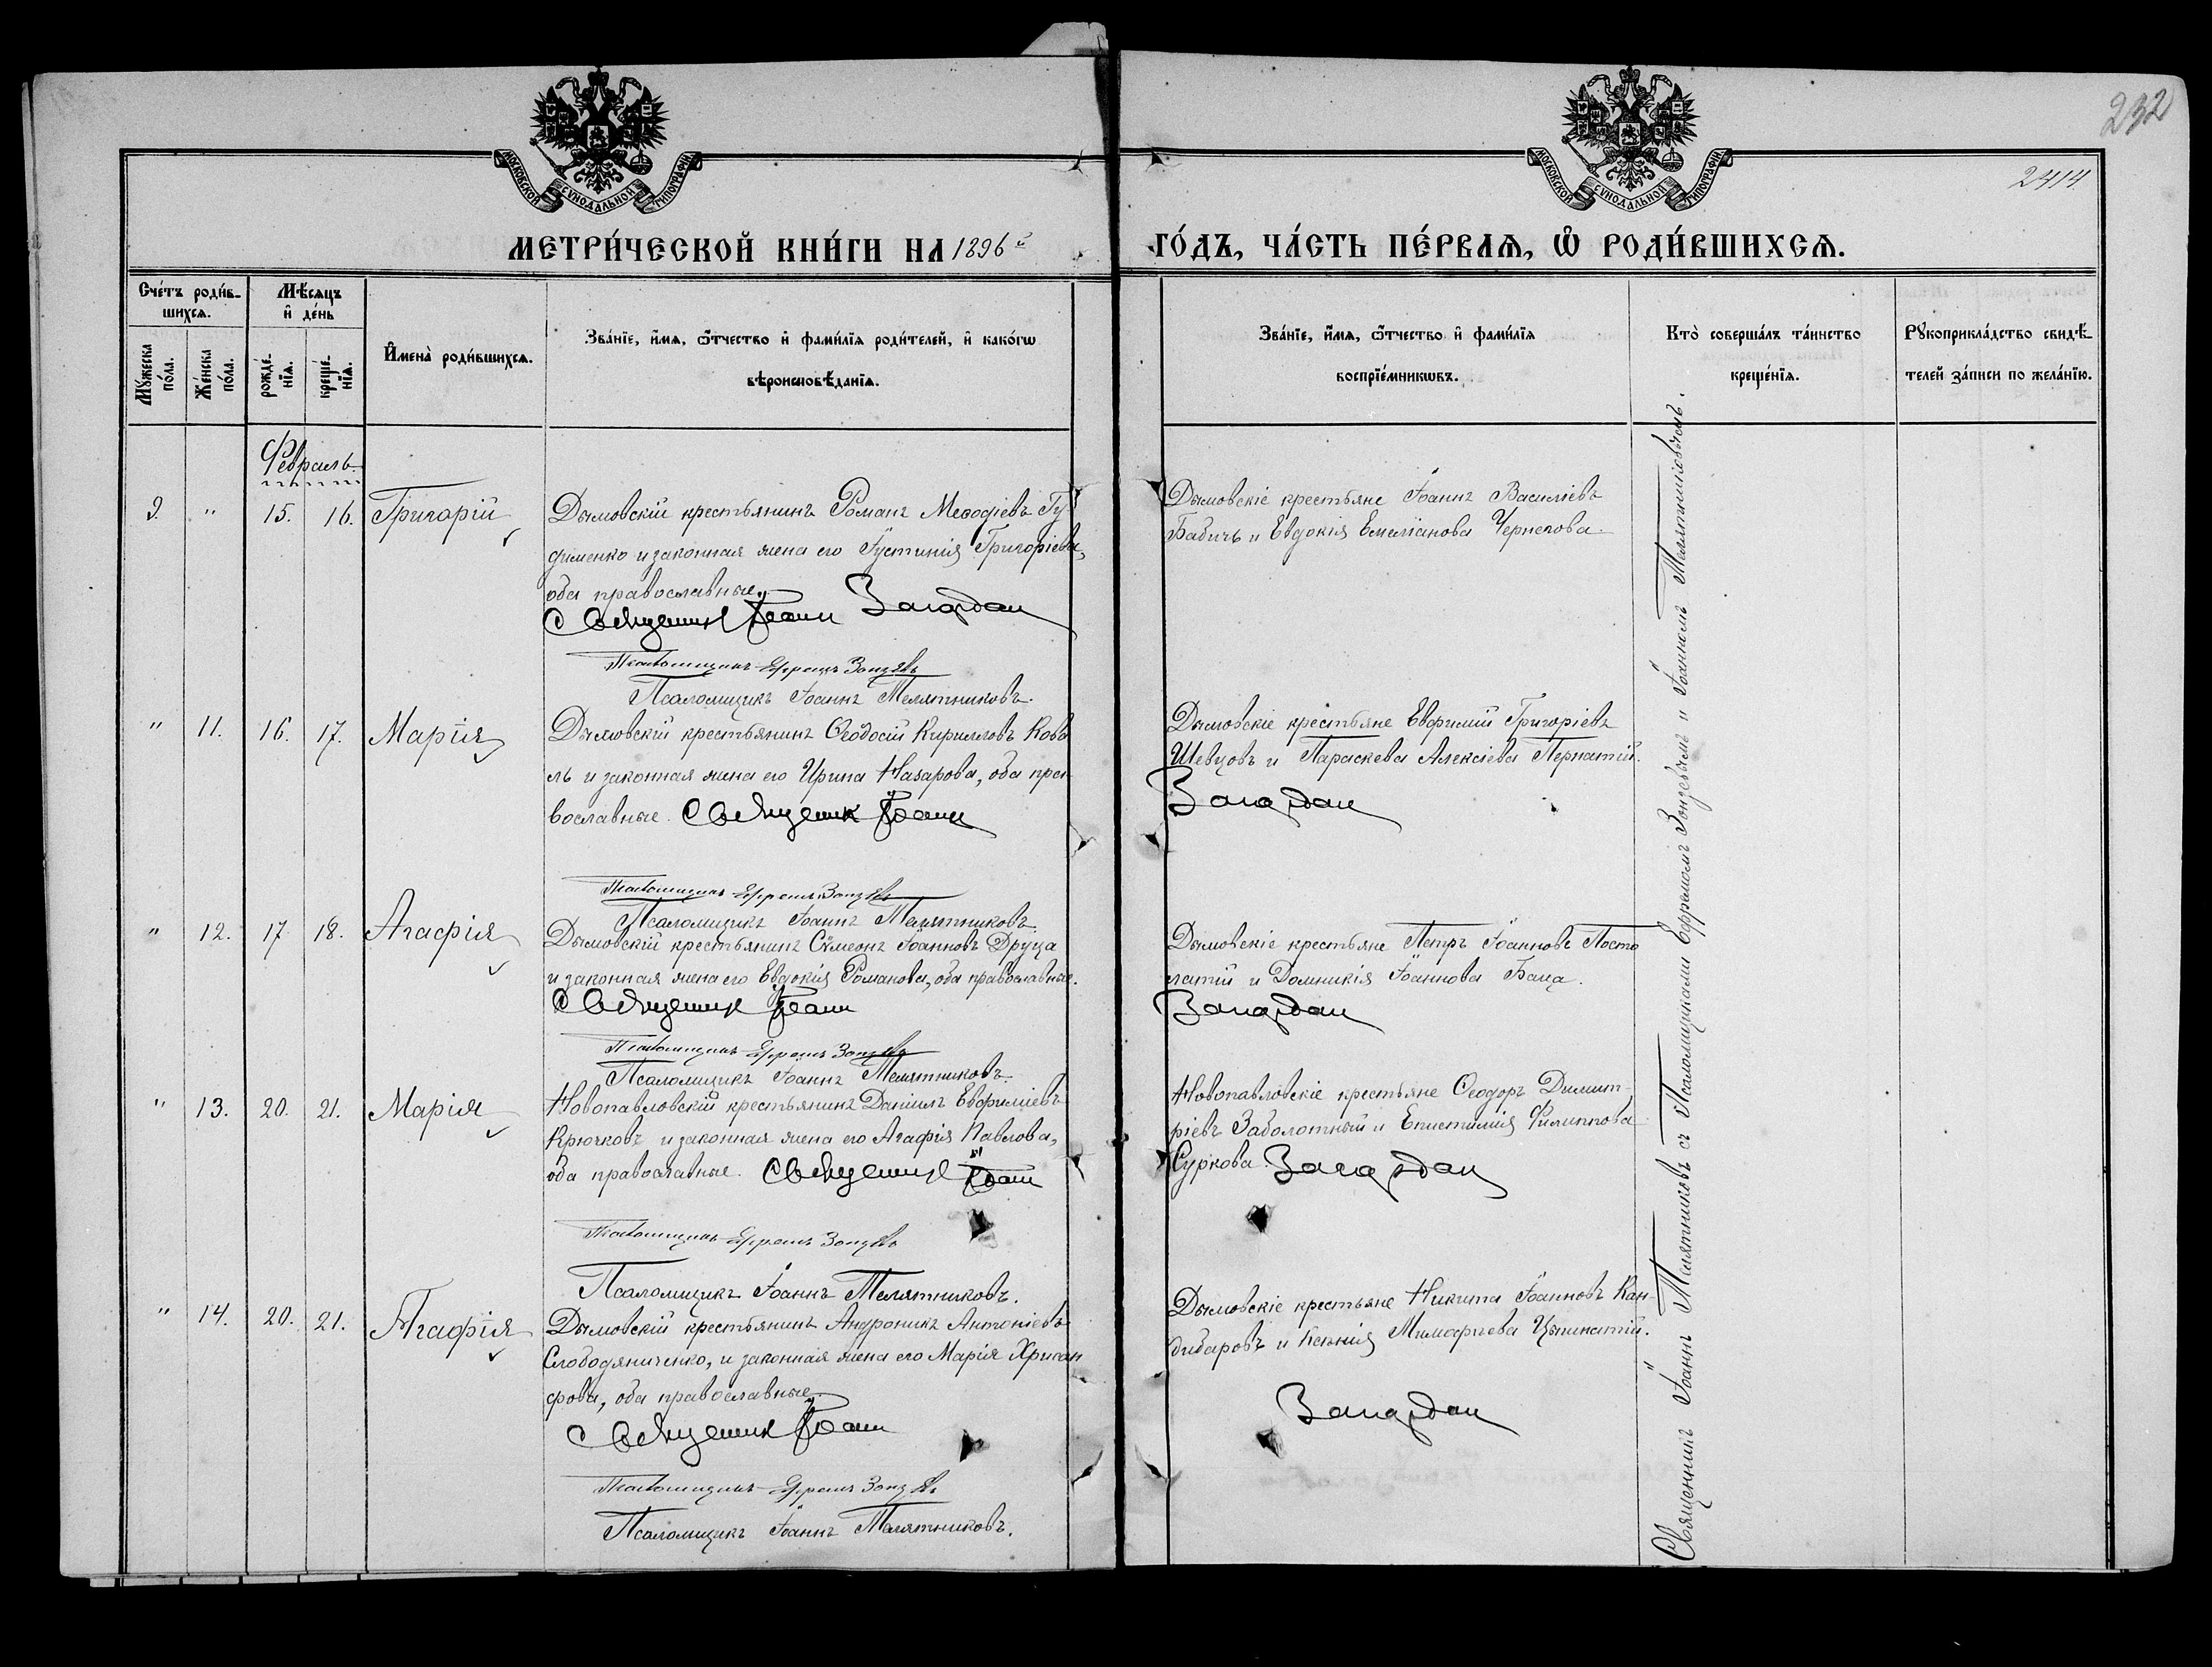 232
2414
МОСКОВСКОЙ СУНОДАЛЬНОЙ ТИПОГРАФІИ
МОСКОВСКОЙ СУНОДАЛЬНОЙ ТИПОГРАФІИ
МЕТРИ́ЧЕСКОЙ КНИ́ГИ НА 1896й
ГО́ДЪ, ЧА́СТЬ ПЕ́РВАѦ, Ѡ҆ РОДИ́ВШИХСѦ.
Сче́тъ роди́в-
шихсѧ.
Мꙋ́жеска по́ла.
Же́нска по́ла.
Мѣ́сѧцъ
и҆ де́нь
рожде́нїѧ.
креще́нїѧ.
И҆мена̀ роди́вшихсѧ.
Зва́нїе, и҆́мѧ, ѻ҆́тчество и҆ фами́лїѧ роди́телей, и҆ како́гѡ
вѣроисповѣ́данїѧ.
Зва́нїе, и҆́мѧ, ѻ҆́тчество и҆ фами́лїѧ
воспрїе́мникѡвъ.
Кто̀ соверша́лъ та́инство
креще́нїѧ.
Рꙋкоприкла́дство свидѣ́-
телей за́писи по жела́нїю.
Февраль
9. " 15. 16. Григорій
Дымовскій крестьянинъ Романъ Меѳодіевъ Гу
дименко и законная жена его Іустинія Григоріева,
оба православные.
Священник Іоанн Загордан
Псаломщикъ Ефремъ Зонзевъ
Псаломщикъ Іоаннъ Телятниковъ.
Дымовскіе крестьяне Іоаннъ Василіевъ
Бабичъ и Евдокія Емеліанова Чернегова
" 11. 16. 17. Марія
Дымовскій крестьянинъ Ѳеодосій Кирилловъ Кова
ль и законная жена его Ирина Назарова, оба пра
вославные. Священник Іоанн
Псаломщикъ Ефремъ Зонзевъ
Псаломщикъ Іоаннъ Телятниковъ.
Дымовскіе крестьяне Евфимій Григоріевъ
Шевцовъ и Параскева Алексіева Пернатій.
Загордан
" 12. 17. 18. Агафія
Дымовскій крестьянинъ Сѵмеонъ Іоанновъ Друца
и законная жена его Евдокія Романова, оба православные.
Священник Іоанн
Псаломщикъ Ефремъ Зонзевъ
Псаломщикъ Іоаннъ Телятниковъ.
Дымовскіе крестьяне Петръ Іоанновъ Посто
латій и Домникія Іоаннова Баца.
Загордан
" 13. 20. 21. Марія
Новопавловскій крестьянинъ Даніилъ Евфиміевъ
Крючковъ и законная жена его Агафія Павлова,
оба православные. Священник Іоанн
Псаломщикъ Ефремъ Зонзевъ
Псаломщикъ Іоаннъ Телятниковъ.
Новопавловскіе крестьяне Ѳеодоръ Димит-
ріевъ Заболотный и Епистимія Филиппова
Суркова. Загордан
" 14. 20. 21. Агафія
Дымовскій крестьянинъ Андроникъ Антоніевъ
Слободяниченко, и законная жена его Марія Хрисан
фова, оба православные.
Священник Іоанн
Псаломщикъ Ефремъ Зонзевъ
Псаломщикъ Іоаннъ Телятниковъ.
Дымовскіе крестьяне Никита Іоанновъ Кан-
дибаровъ и Ксенія Тимофіева Цыпнатій.
Загордан
Священникъ Іоаннъ Телятниковъ съ Псаломщиками Ефремомъ Зонзевымъ и Іоанномъ Телятниковымъ.